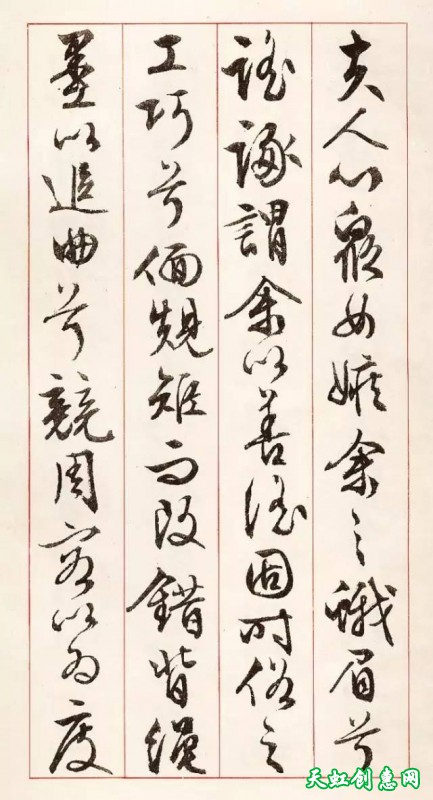 夫人心眾女嫉余之蛾眉兮
謠諑謂余以善淫固時俗之
工巧兮偭規矩而改錯背繩
墨以追曲兮競周容以為度
天虹创意网